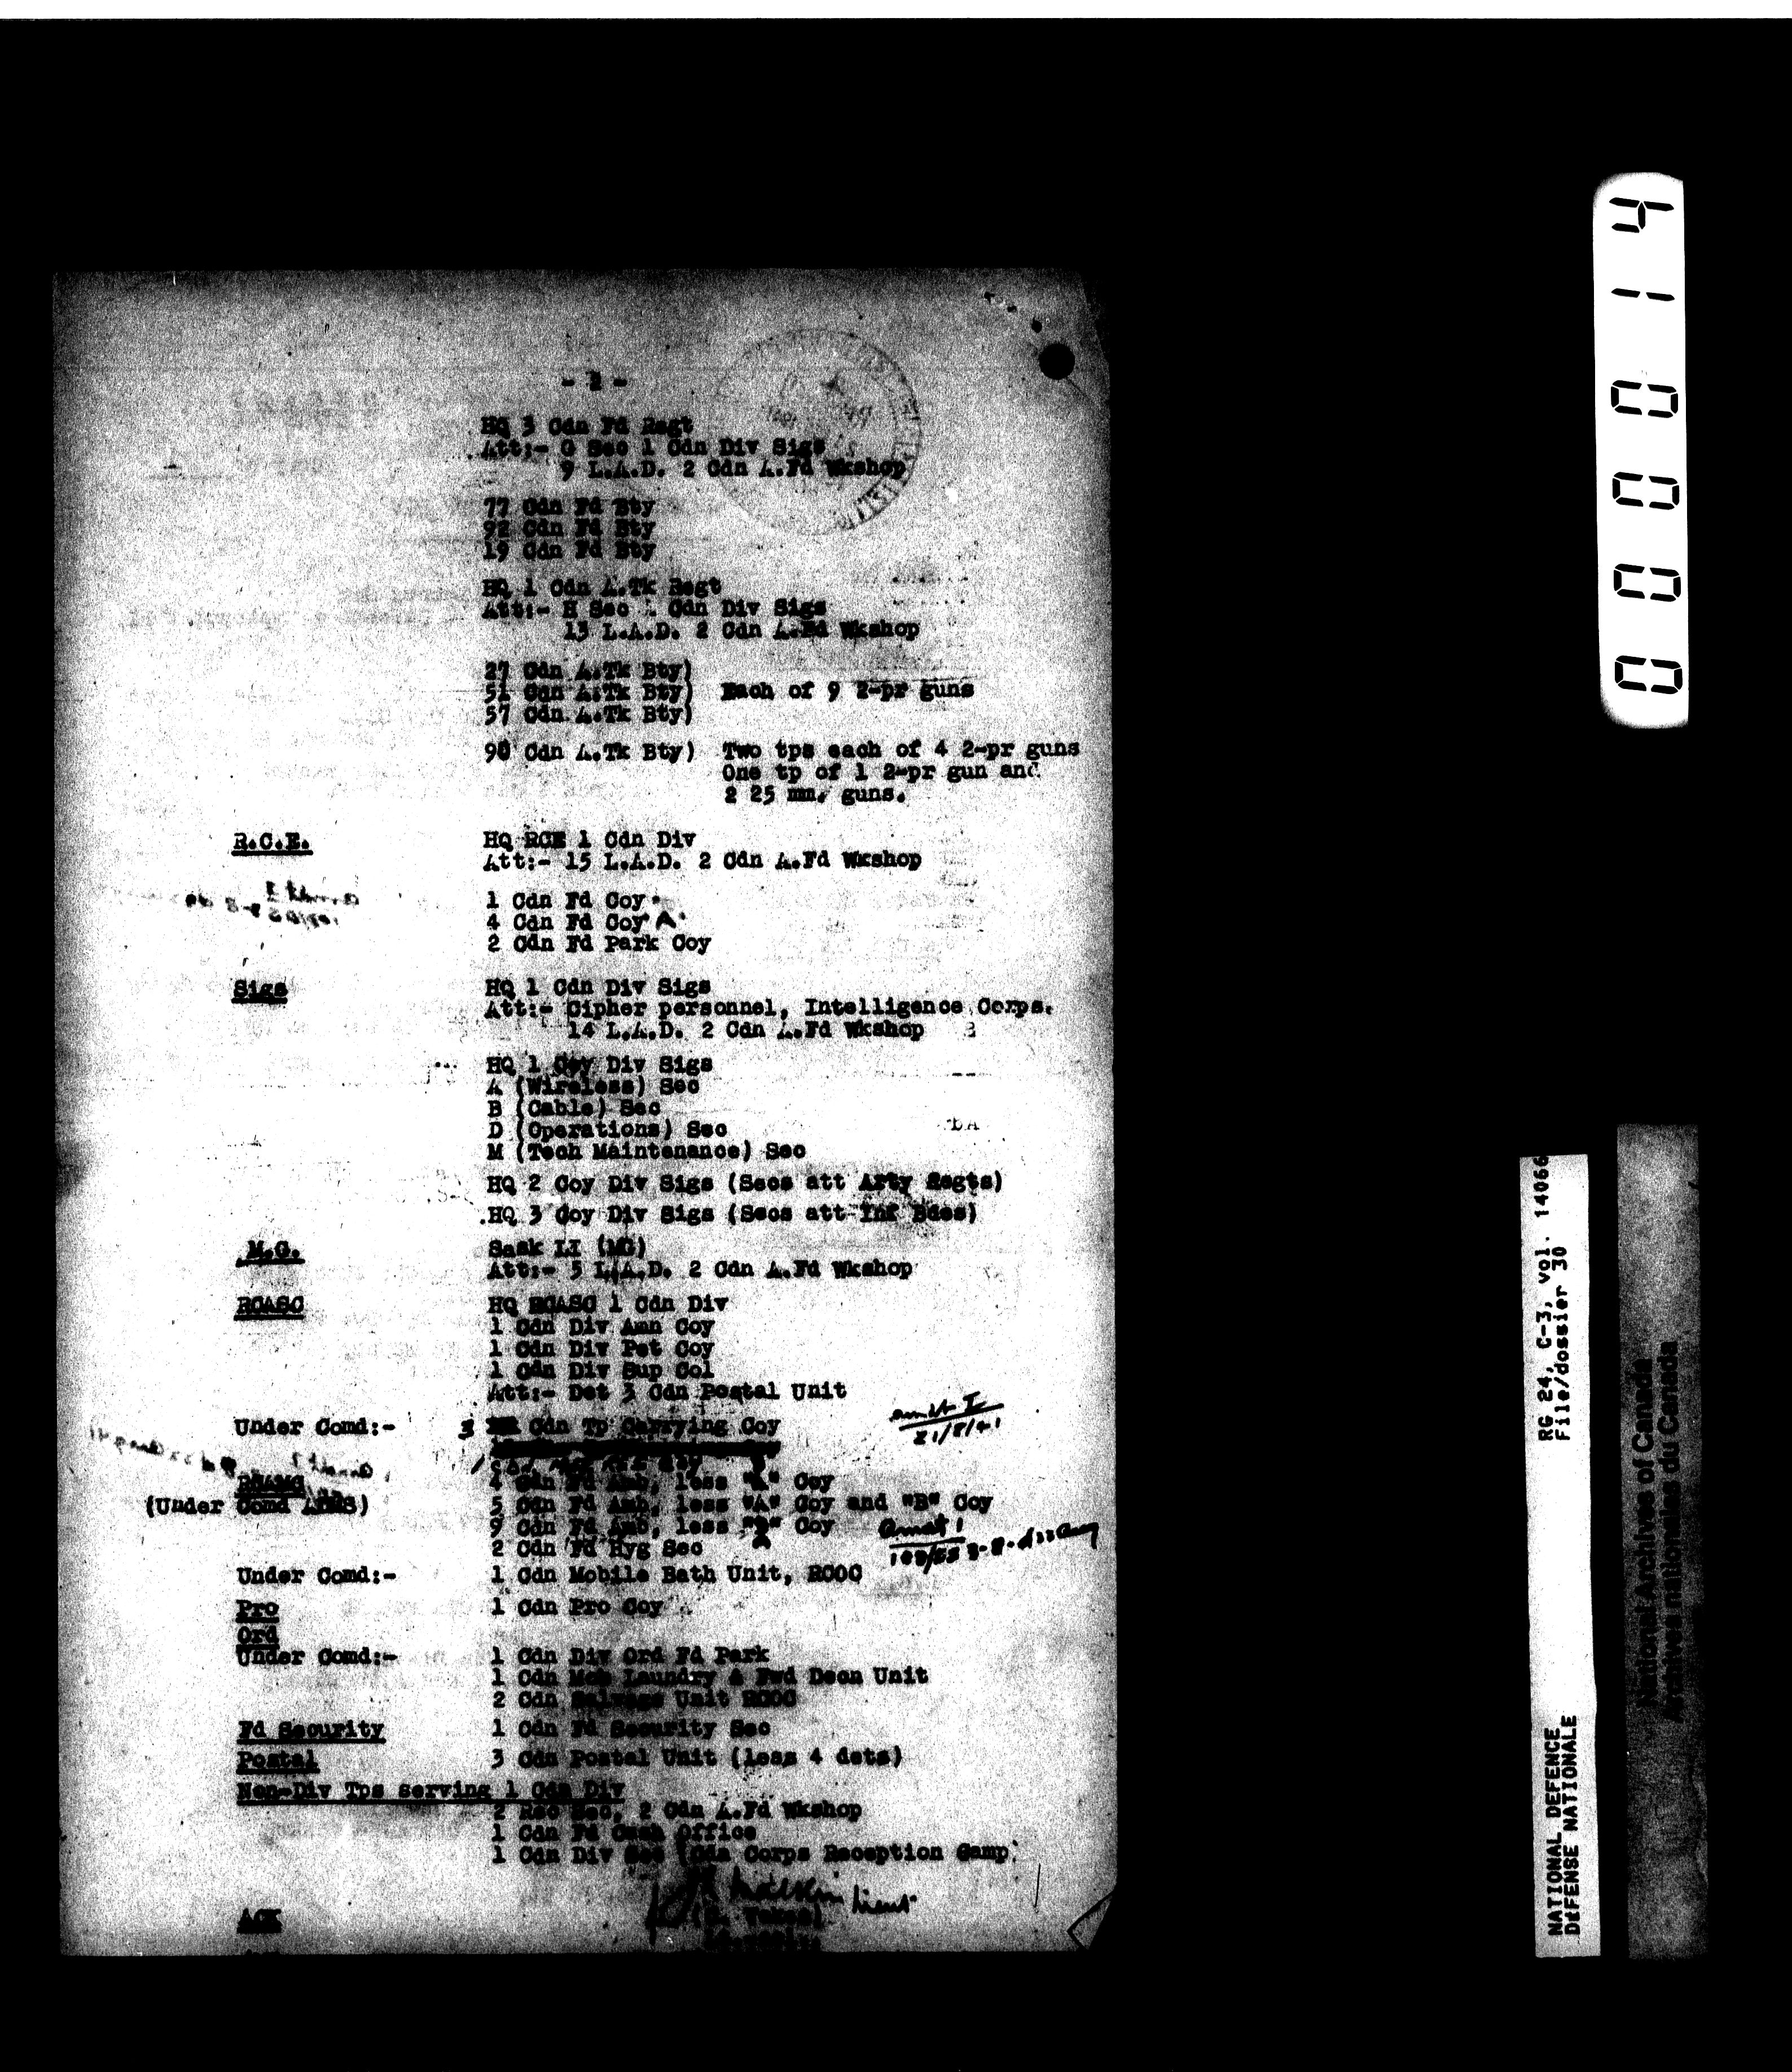 - 2 -
HQ 3 Cdn Fd Regt
Att:- G Sec 1 Cdn Div Sigs
9 L.A.D. 2 Cdn A.Fd Wkshop
77 Cdn Fd Bty
92 Cdn Fd Bty
19 Cdn Fd Bty
HQ 1 Cdn A.Tk Regt
Att:- H Sec 1 Cdn Div Sigs
13 L.A.D. 2 Cdn A.Fd Wkshop
27 Cdn A.Tk Bty)
51 Cdn A.Tk Bty) Each of 9 2-pr guns
57 Cdn A.Tk Bty)
90 Cdn A.Tk Bty) Two tps each of 4 2-pr guns
One tp of 1 2-pr gun and
2 25 mm. guns.
R.C.E. HQ RCE 1 Cdn Div
Att:- 15 L.A.D. 2 Cdn A.Fd Wkshop
1 Cdn Fd Coy
4 Cdn Fd Coy
2 Cdn Fd Park Coy
Sigs HQ 1 Cdn Div Sigs
Att:- Cipher personnel, Intelligence Corps.
14 L.A.D. 2 Cdn A.Fd Wkshop
HQ 1 Coy Div Sigs
A (Wireless) Sec
B (Cable) Sec
D (Operations) Sec
M (Tech Maintenance) Sec
HQ 2 Coy Div Sigs (Secs att Arty Regts)
HQ 3 Coy Div Sigs (Secs att Inf Bdes)
M.G. Sask LI (MG)
Att:- 5 L.A.D. 2 Cdn A.Fd Wkshop
RCASC HQ RCASC 1 Cdn Div
1 Cdn Div Amn Coy
1 Cdn Div Pet Coy
1 Cdn Div Sup Col
Att:- Det 3 Cdn Postal Unit
Under Comd:- 3 Cdn Tp Carrying Coy
amdt I
21/8/41
RCAMC 4 Cdn Fd Amb, less "A" Coy
(Under Comd ADMS) 5 Cdn Fd Amb, less "A" Coy and "B" Coy
9 Cdn Fd Amb, less Coy
2 Cdn Fd Hyg Sec
Amdt 1
Under Comd:- 1 Cdn Mobile Bath Unit, RCOC
Pro 1 Cdn Pro Coy
Ord
Under Comd:- 1 Cdn Div Ord Fd Park
1 Cdn Mob Laundry & Fwd Decn Unit
2 Cdn Salvage Unit RCOC
Fd Security 1 Cdn Fd Security Sec
Postal 3 Cdn Postal Unit (less 4 dets)
Non-Div Tps serving 1 Cdn Div
2 Rec Sec, 2 Cdn A.Fd Wkshop
1 Cdn Fd Cash Office
1 Cdn Div Sec (Cdn Corps Reception Camp)
Lieut
ACK
000014
RG 24, C-3, vol. 14066
File/dossier 30
NATIONAL DEFENCE
DÉFENSE NATIONALE
National Archives of Canada
Archives nationales du Canada